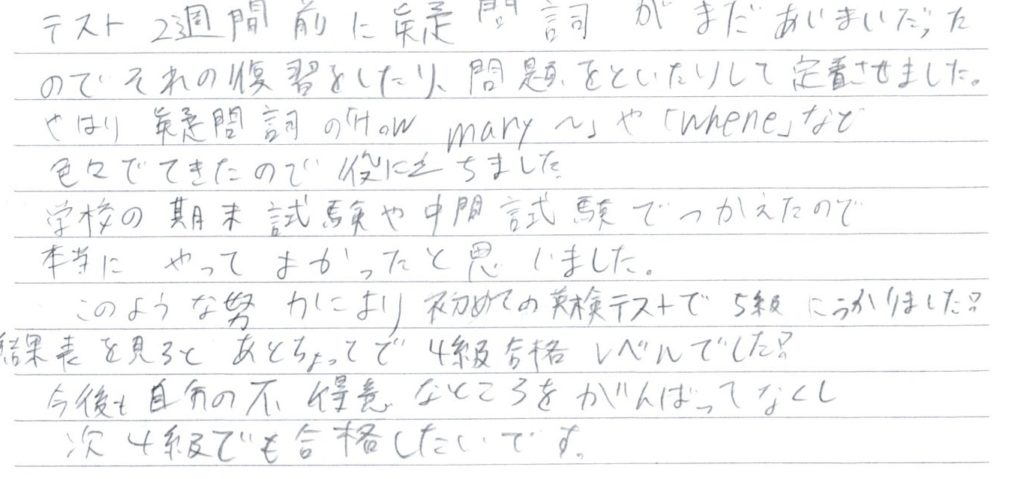 テスト 2週間前に疑問詞がまだあいまいだった
のでそれの復習をしたり、問題をといたりして定着させました。
やはり疑問詞の「How many ～」や「where」など
色々でてきたので役に立ちました
学校の期末試験や中間試験でつかえたので
本当に やってよかったと思いました。
このような努力により初めての英検テストで5級にうかりました?
結果表を見ると あとちょっとで 4級合格レベルでした?
今後も自分の不得意なところをがんばってなくし
次4級でも合格したいです。